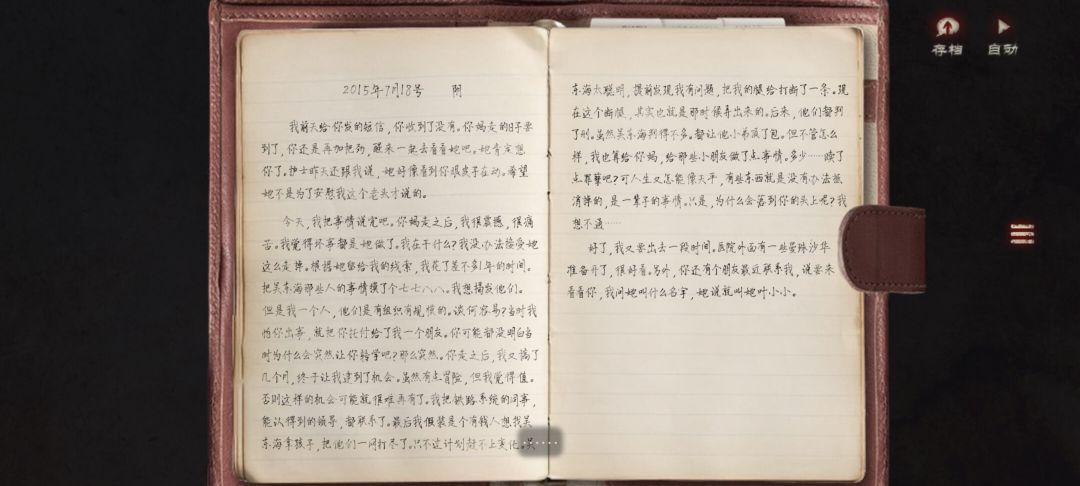 存档 自动
2015年7月18号 阴
我前天给你发的短信，你收到了没有。你妈走的日子要
到了，你还是再加把劲，醒来一起去看看她吧。她肯定想
你了。护士昨天还跟我说，她好像看到你眼皮子在动。希望
她不是为了安慰我这个老头才说的。
今天，我把事情说完吧。你妈走之后，我很震撼，很痛
苦。我觉得坏事都是她做了。我在干什么？我没办法接受她
这么走掉。根据她留给我的线索，我花了差不多1年的时间。
把吴东海那些人的事情摸了个七七八八。我想揭发他们。
但是我一个人，他们是有组织有规模的。谈何容易？当时我
怕你出事，就把你托付给了我一个朋友。你可能都没明白当
时为什么会突然让你转学吧？那么突然。你走之后，我又搞了
几个月，终于让我逮到了机会。虽然有点冒险，但我觉得值。
否则这样的机会可能就很难再有了。我把铁路系统的同事，
能认得到的领导，都联系了。最后我假装是个有钱人想找吴
东海拿孩子，把他们一网打尽了。只不过计划赶不上变化。吴
东海太聪明，提前发现我有问题，把我的腿给打断了一条。现
在这个断腿，其实也就是那时候弄出来的。后来，他们都判
了刑。虽然吴东海判得不多。都让他小弟顶了包。但不管怎么
样，我也算给你妈，给那些小朋友做了点事情。多少……赎了
点罪孽吧？可人生又怎能像天平，有些东西就是没有办法抵
消掉的，是一辈子的事情。只是，为什么会落到你的头上呢？我
想不通……
好了，我又要出去一段时间。医院外面有一些曼珠沙华
准备开了，很好看。另外，你还有个朋友最近联系我，说要来
看看你，我问她叫什么名字，她说就叫她叶小小。